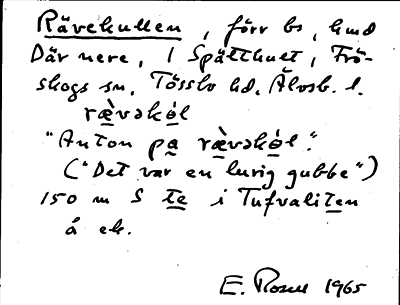 Rävekullen, förr bs, hmd
Där nere, i Spälthult, Frö-
skogs sn, Tössbo hd, Älvsb. l.
rævəkól
"Anton pa rævəkól."
("Det var en lurig gubbe")
150 m S te i Tufvaliten
å ek.
E. 1965